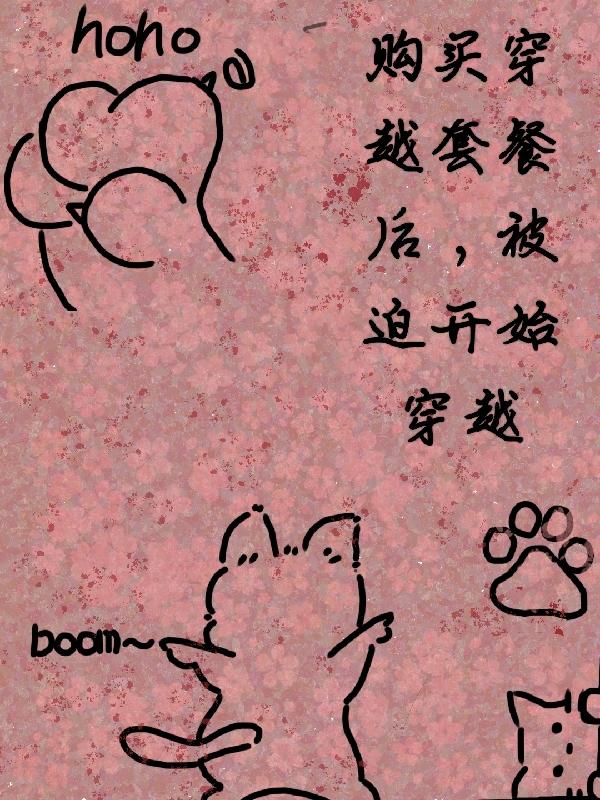 hoho
购买穿
越套餐
后，被
迫开始
穿越
boom~